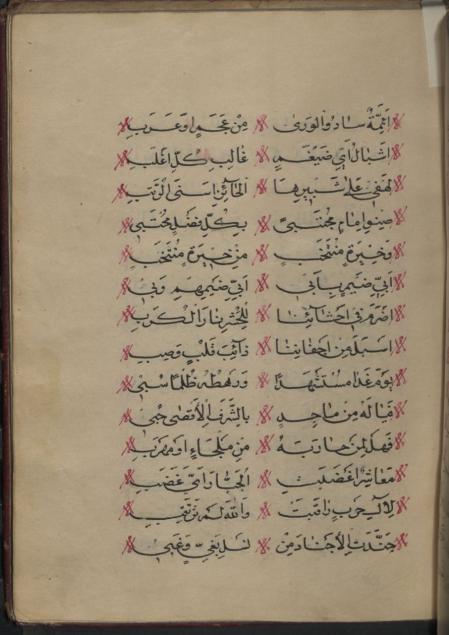 ائمة سادوا الورى من عجم او عرب
اشبال ابي ضيغم غالب كل اغلب
لهفي على شبيرها الحائز اسنى الرتب
صنو امام مجتبى بكل فضل مجتبي
وخيرة منتخب من خيرة منتخب
ابي ضيم بابي ابي ضيمهم وبي
اضرم في احشائنا للحشر نار الكرب
اسبل من اجفاننا ذائب قلب وصب
يوم غدا مستشهدا ورهطه ظلما سبي
فياله من ماجد بالشرف الاقصى حبي
فهل لمن حاربه من ملجاء او مهرب
معاشر اغضبت الجبار اي غضب
لال حرب راقبت والله لم ترتقب
جندت الاجناد من لبغي وغبي